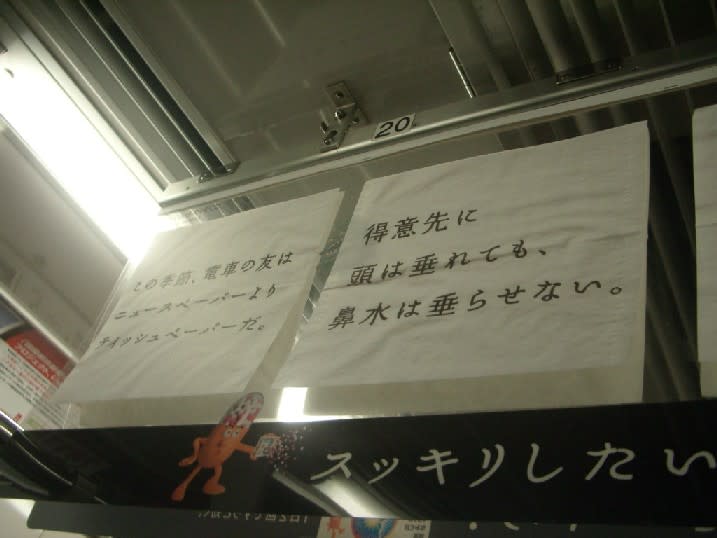 20
この季節、電車の友は
ニュースペーパーより
ティッシュペーパーだ。
得意先に
頭は垂れても、
鼻水は垂らせない。
スッキリしたい